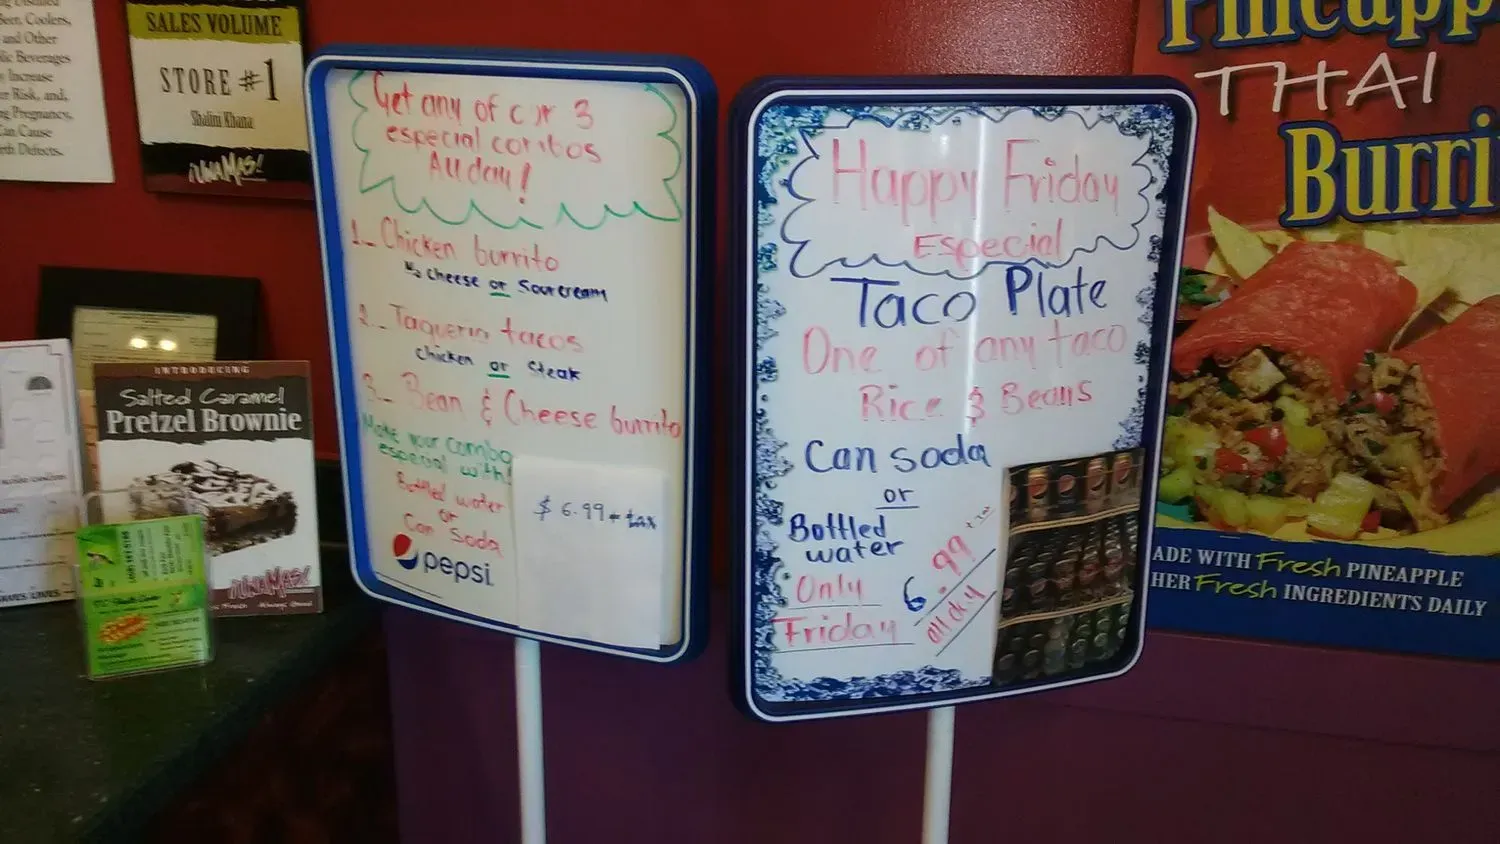 Beer, Coolers,
and Other
Beverages
Increase
Risk, and,
Pregnancy,
Can Cause
Defects.
SALES VOLUME
STORE #1
Shalini Khana
¡UNA MAS!
INTRODUCING
Salted Caramel
Pretzel Brownie
¡UNA MAS!
Get any of our 3
especial combos
All day!
1._ Chicken burrito
No Cheese or Sour cream
2._ Taqueria tacos
Chicken or Steak
3._ Bean & Cheese burrito
Make your combo
especial with!
Bottled water
or
Can Soda
$ 6.99 + tax
pepsi
Happy Friday
Especial
Taco Plate
One of any taco
Rice & Beans
Can soda
or
Bottled
water
Only
Friday
6.99 + tax
all day
Pineapp
THAI
Burri
ADE WITH Fresh PINEAPPLE
HER Fresh INGREDIENTS DAILY